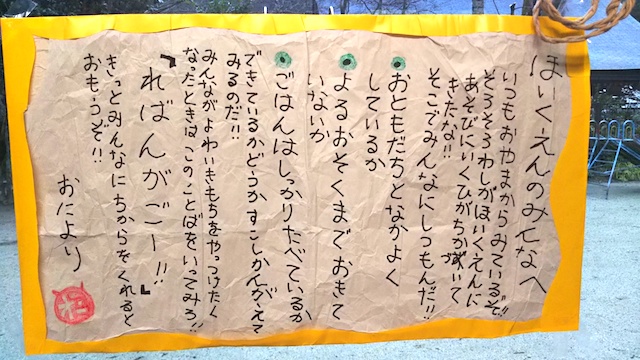 ほいくえんのみんなへ
いつもおやまからみているぞ!!
そろそろわしがほいくえんに
あそびにいくひがちかづいて
きたな!!
そこでみんなにしつもんだ!!
おともだちとなかよく
しているか
よるおそくまでおきて
いないか
ごはんはしっかりたべているか
できているかどうかすこしかんがえて
みるのだ!!
みんながよわいきもちをやっつけたく
なったときはこのことばをいってみろ!!
「ればんがごー!!」
きっとみんなにちからをくれると
おもうぞ!!
おにより